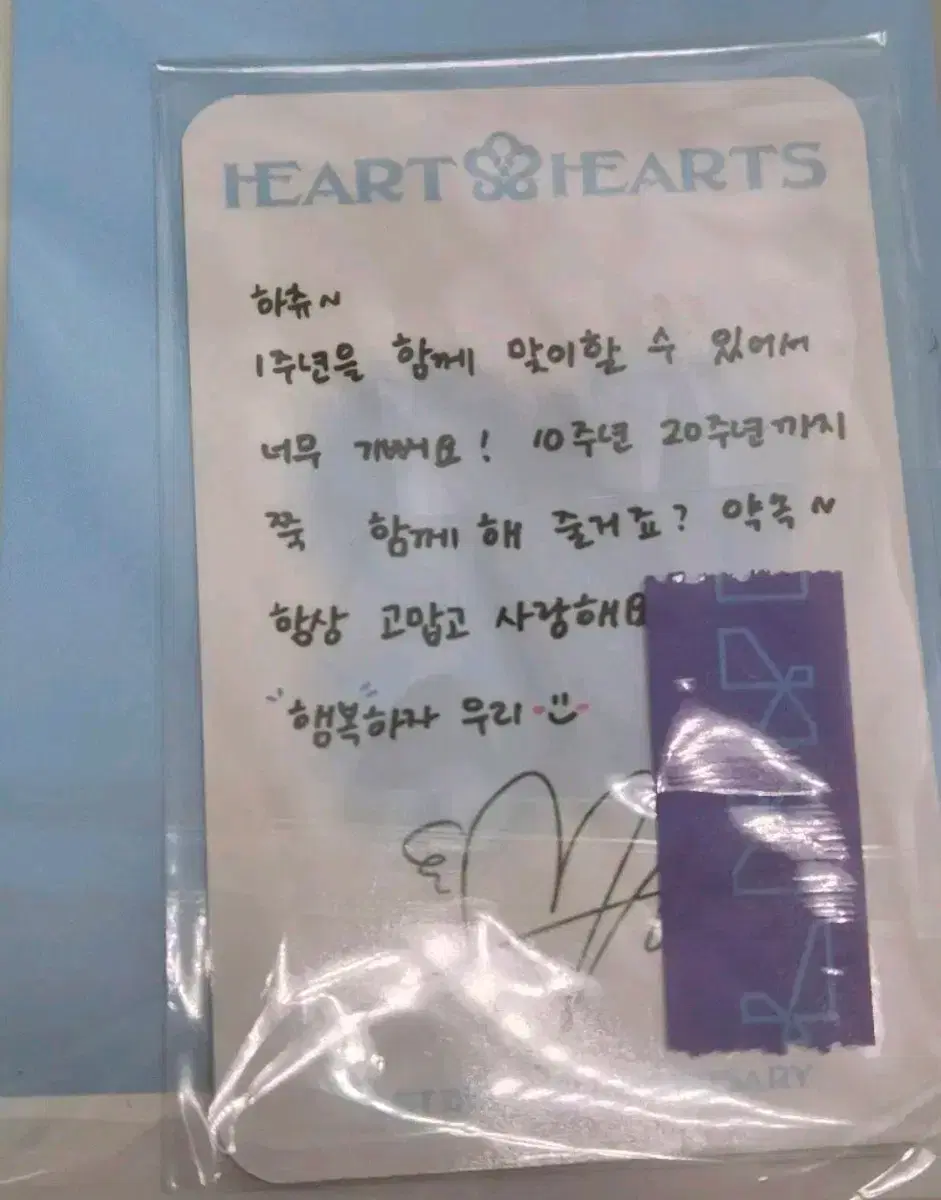 HEART HEARTS
하츄~
1주년을 함께 맞이할 수 있어서
너무 기뻐요! 10주년 20주년까지
쭉 함께 해 줄거죠? 약속~
항상 고맙고 사랑해요
"행복"하자 우리